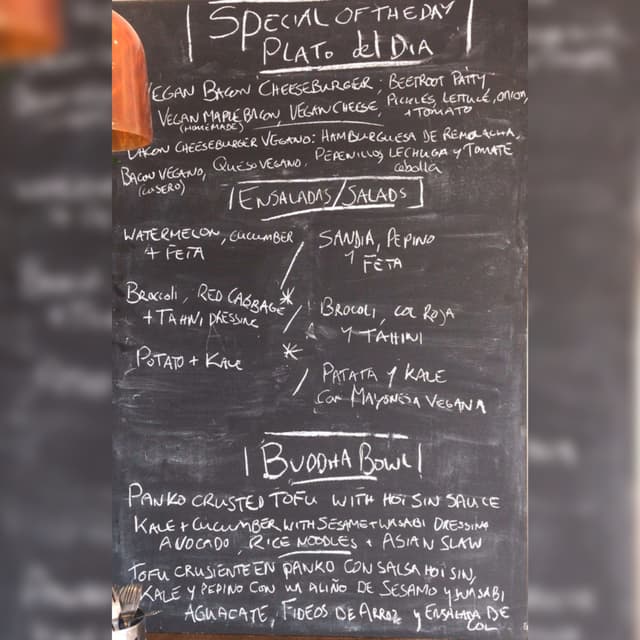 SPECIAL OF THE DAY
PLATO del DIA
VEGAN BACON CHEESEBURGER; BEETROOT PATTY,
VEGAN MAPLE BACON, VEGAN CHEESE, PICKLES, LETTUCE, ONION,
(HOMEMADE) + TOMATO
BACON CHEESEBURGER VEGANO: HAMBURGUESA DE REMOLACHA,
BACON VEGANO, QUESO VEGANO, PEPENILLOS, LECHUGA Y TOMATE
(CASERO) cebolla
ENSALADAS/SALADS
WATERMELON, CUCUMBER / SANDIA, PEPINO
+ FETA Y FETA
BROCCOLI, RED CABBAGE * / BROCOLI, COL ROJA
+ TAHINI DRESSING Y TAHINI
POTATO + KALE * / PATATA Y KALE
CON MAYONESA VEGANA
BUDDHA BOWL
PANKO CRUSTED TOFU WITH HOI SIN SAUCE
KALE + CUCUMBER WITH SESAME + WASABI DRESSING
AVOCADO, RICE NOODLES + ASIAN SLAW
TOFU CRUSIENTE EN PANKO CON SALSA HOI SIN,
KALE Y PEPINO CON UN ALIÑO DE SESAMO Y WASABI
AGUACATE, FIDEOS DE ARROZ Y ENSALADA DE
COL